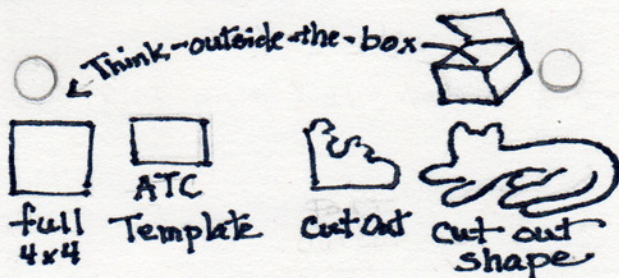 Think-outside-the-box
full
4x4
ATC
Template
Cut Out
Cut out
shape